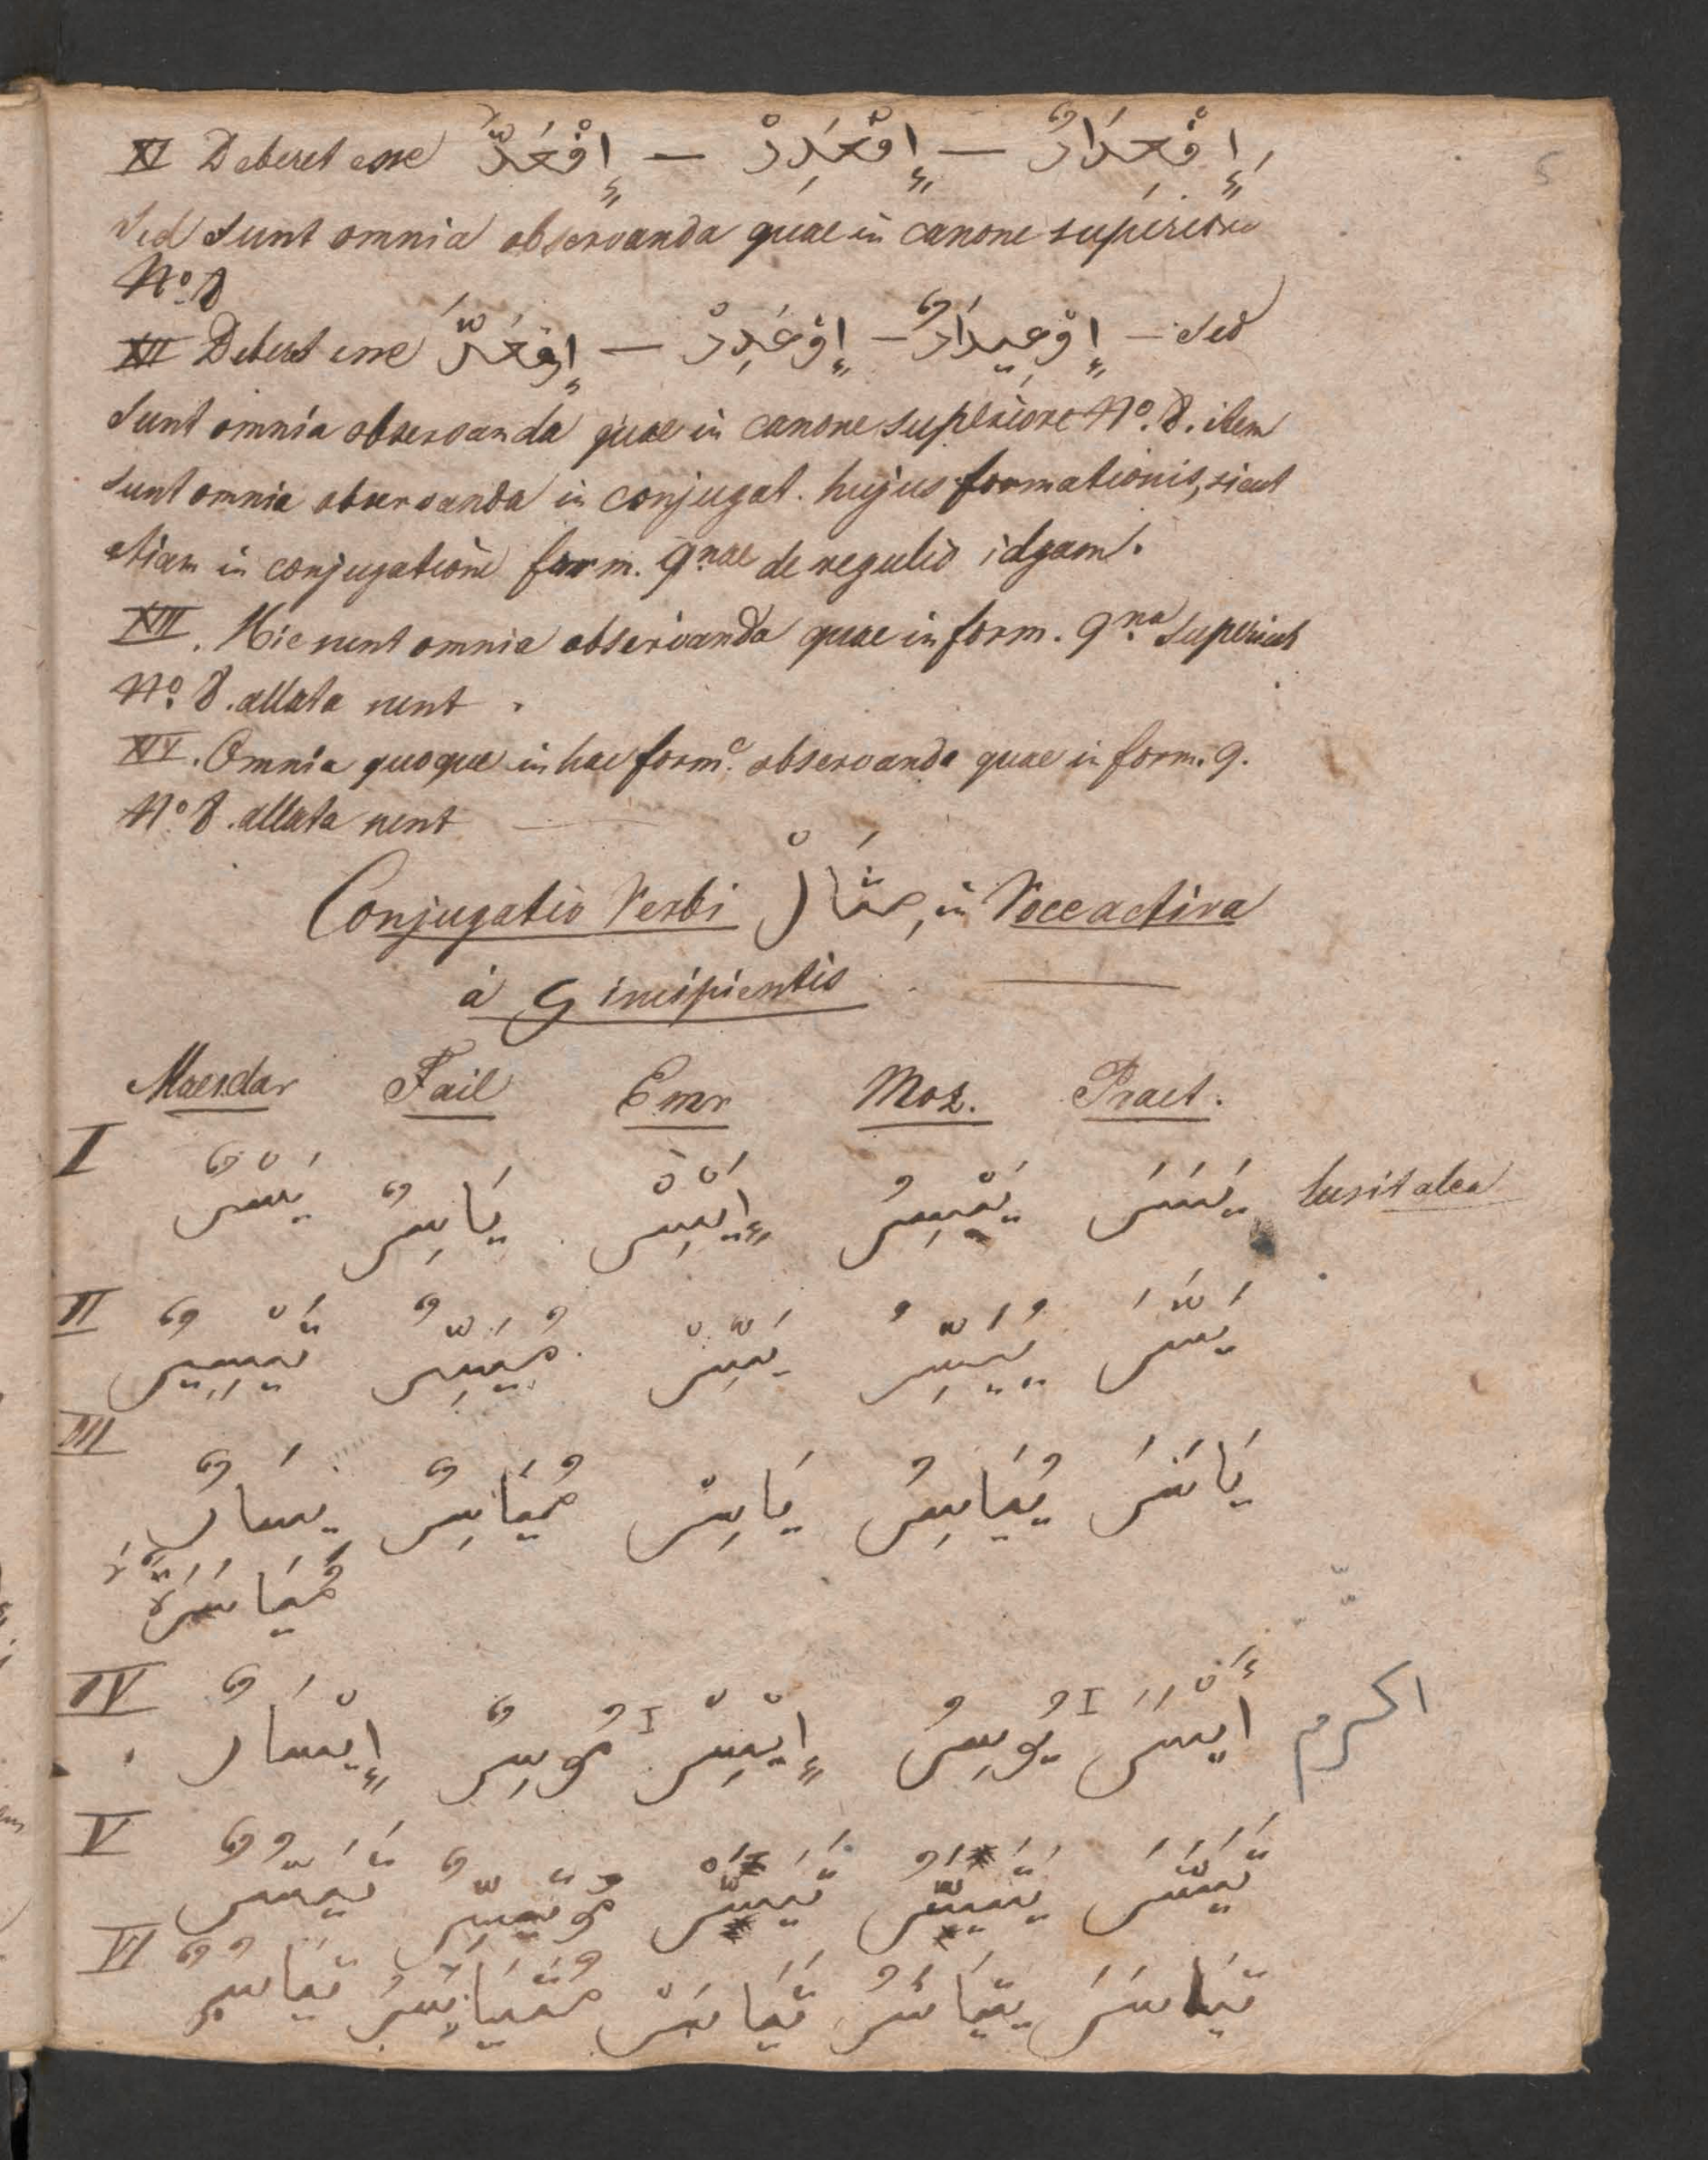 XI Deberet esse إِفْعَدَّ — إِفْعَدِدْ — إِفْعِدَادٌ
sed sunt omnia observanda quae in canone superiore
Nº. 8
XII Deberet esse إِوْعَدَّ — إِوْعَدِدْ — إِوْعِيدَادٌ — sed
sunt omnia observanda quae in canone superiore Nº. 8. item
sunt omnia observanda in conjugat. hujus formationis, sicut
etiam in conjugatione form. 9nae de regulis idgam.
XIII. Hic sunt omnia observanda quae in form. 9na superius
Nº. 8. allata sunt.
XIV. Omnia quoque in hac forma observanda quae in form. 9.
Nº 8. allata sunt
Conjugatio Verbi مثَالْ, in Voce activa
à ي incipientis
Maesdar Fail Emr Moz. Praet.
I يَسَرَ يَيْسِرُ إِيْسِرْ يَاسِرٌ يَسْرٌ lusit alea
II يَسَّرَ يُيَسِّرُ يَسِّرْ مُيَسِّرٌ تَيْسِيرٌ
III يَاسَرَ يُيَاسِرُ يَاسِرْ مُيَاسِرٌ يِسَارٌ
مُيَاسَرَةٌ
IV أَيْسَرَ يُوسِرُ إِيْسِرْ مُوسِرٌ إِيْسَارٌ اكرم
V تَيَسَّرَ يَتَيَسَّرُ تَيَسَّرْ مُتَيَسِّرٌ تَيَسُّرٌ
VI تَيَاسَرَ يَتَيَاسَرُ تَيَاسَرْ مُتَيَاسِرٌ تَيَاسُرٌ